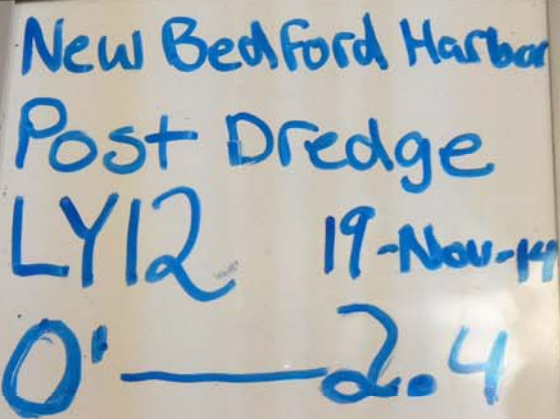 New Bedford Harbor
Post Dredge
LY12 19-Nov-14
0' — 2.4